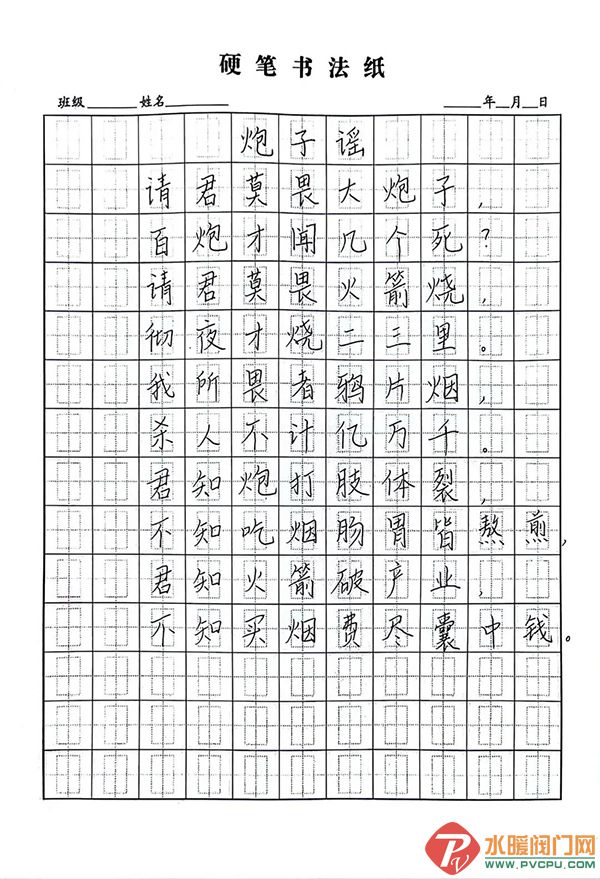 硬笔书法纸
班级 姓名 年 月 日
炮子谣
请君莫畏大炮子，
百炮才闻几个死？
请君莫畏火箭烧，
彻夜才烧二三里。
我所畏者鸦片烟，
杀人不计亿万千。
君知炮打肢体裂，
不知吃烟肠胃皆熬煎，
君知火箭破产业，
不知买烟费尽囊中钱。
水暖阀门网
WWW.PVCPU.COM